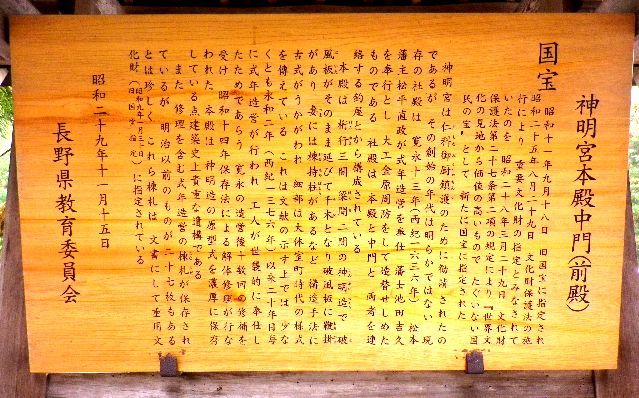 神明宮本殿中門(前殿)
国宝
昭和十一年九月十八日 旧国宝に指定され
昭和二十五年八月二十九日 文化財保護法の施
行により 重要文化財の指定とみなされて
いたのを 昭和二十八年三月二十九日 文化財
保護法第二十七条第二項の規定により『世界文
化の見地から価値の高いもので たぐいない国
民の宝』として 新たに国宝に指定された
神明宮は仁科御厨鎮護のために勧請されたの
であるが その創始の年代は明らかではない 現
存の社殿は 寛永十三年(西紀一六三六年) 松本
藩主松平直政が式年造営を奉仕し 藩士池田吉久
を奉行とし 大工金原周防をして造替せしめた
ものである 社殿は 本殿と中門と 両者を連
絡する釣屋とから構成されている
本殿は 桁行三間 梁間二間の神明造で 破
風板がそのまま延びて千木となり破風板に鞭掛
があり 妻には棟持柱があるなど 構造手法に
古式がうかがわれ 細部は大体室町時代の様式
を傳えている これは文献の示す上では 少な
くとも永和二年(西紀一三七六年)以来二十年目毎
に式年造営が行われ 工人が世襲的に奉仕し
たためであろう 寛永の造営後十数回の修補を
受け 昭和十四年保存法による解体修理が行な
われた 本殿は神明造の原型式を濃厚に保有
している点建築史上貴重な遺構である
また 修理を含む式年造営の棟札が保存され
ているが 明治以前のものが 二十七枚もある
とは珍しく これら棟札は 文書にして重用文
化財(旧国宝 昭和九年一月三十日指定)に指定されている
昭和二十九年十一月十五日
長野県教育委員会